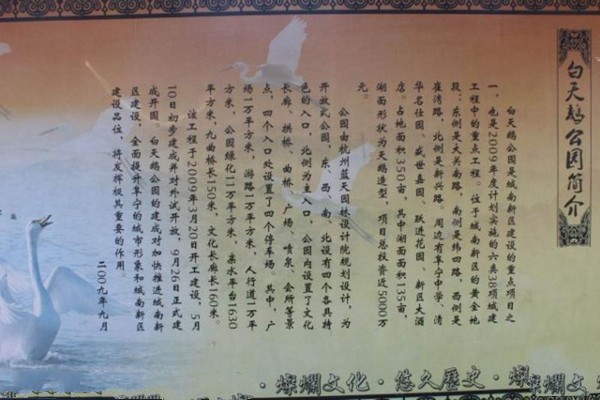 白天鹅公园简介
白天鹅公园是城南新区建设的重点项目之
一，也是2009年度计划实施的六类38项城建
工程中的重点工程。位于城南新区的黄金地
段：东侧是大关南路，南侧是纬四路，西侧是
崔湾路，北侧是新兴路，周边有阜宁中学、清
华名仕园、盛世嘉园、跃进花园、新区大酒
店。占地面积350亩，其中湖面面积135亩，
湖面形状为天鹅造型，项目总投资近5000万
元。
公园由杭州蓝天园林设计院规划设计，为
开放式公园，东、西、南、北设有四个各具特
色的入口，北侧为主入口，公园内设置了文化
长廊、拱桥、曲桥、广场、喷泉、会所等景
点，四个入口处设置了四个停车场，其中，广
场1万平方米，游路1万平方米，人行道1万平
方米，公园绿化11万平方米，亲水平台1630
平方米，九曲桥长150米，文化长廊长160米。
该工程于2009年3月20日开工建设，5月
10日初步建成并对外试开放，9月26日正式建
成开园。白天鹅公园的建成对加快推进城南新
区建设，全面提升阜宁的城市形象和城南新区
建设品位，将发挥极其重要的作用。
二00九年九月
·燦爛文化·悠久歷史·燦爛文